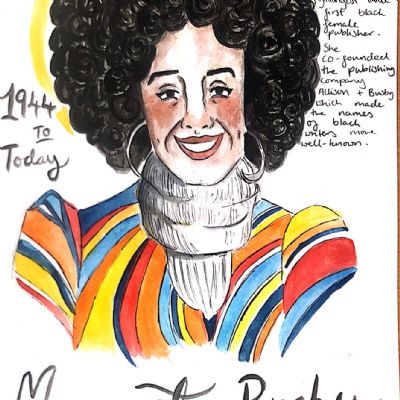 youngest and
first black
female
publisher.
She
co-founded
the publishing
company
Allison + Busby
which made
the names
of black
writers more
well-known.
1944
TO
Today